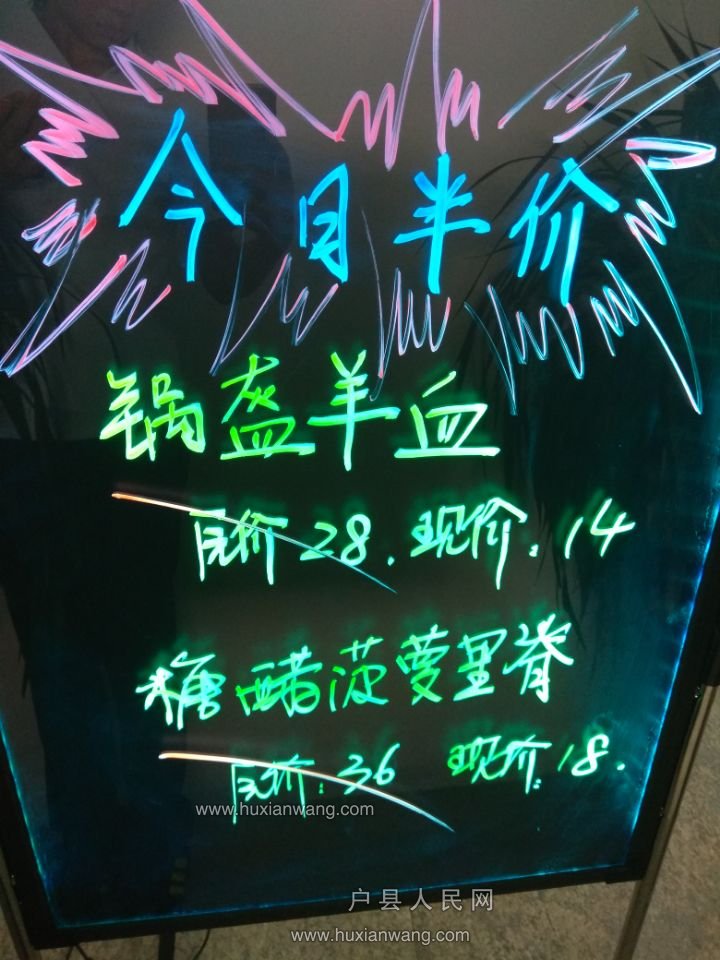 今日半价
锅盔羊血
原价28.现价:14
糖醋菠萝里脊
原价:36 现价:18.
www.huxianwang.com
户县人民网
www.huxianwang.com